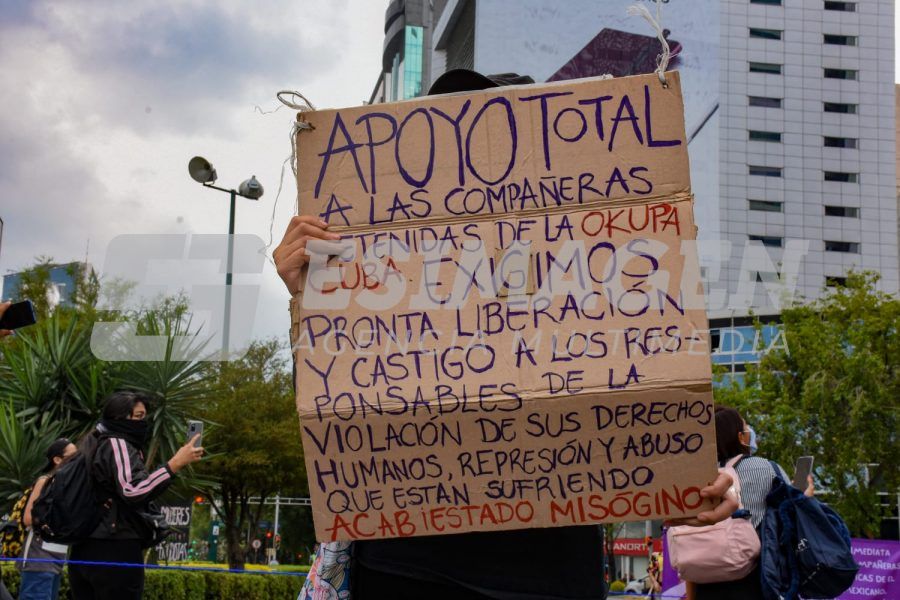 APOYO TOTAL
A LAS COMPAÑERAS
DETENIDAS DE LA OKUPA
CUBA EXIGIMOS
PRONTA LIBERACIÓN
Y CASTIGO A LOS RES-
PONSABLES DE LA
VIOLACIÓN DE SUS DERECHOS
HUMANOS, REPRESIÓN Y ABUSO
QUE ESTÁN SUFRIENDO
ACAB ¡ESTADO MISÓGINO
ESIMAGEN
AGENCIA MULTIMEDIA
MUJERES
ANORTE
INMEDIATA
COMPAÑERAS
ICAS DE
MEXICANO.